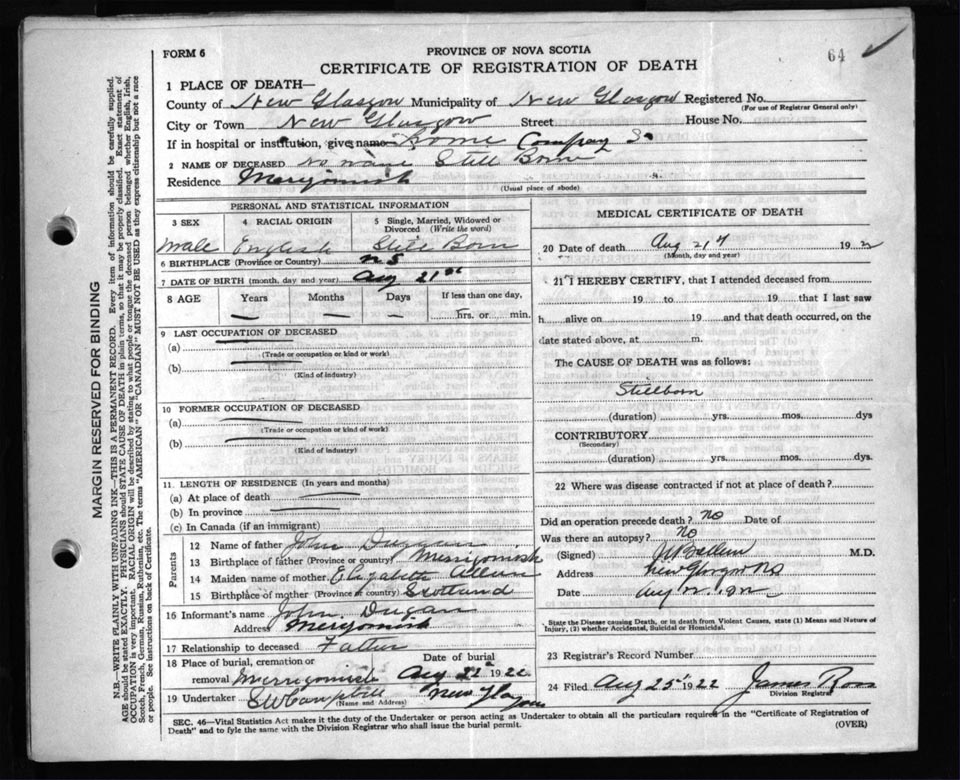 FORM 6
PROVINCE OF NOVA SCOTIA
64
CERTIFICATE OF REGISTRATION OF DEATH
1 PLACE OF DEATH—
County of New Glasgow Municipality of New Glasgow Registered No.
(For use of Registrar General only)
City or Town New Glasgow Street House No.
If in hospital or institution, give name Home
2 NAME OF DECEASED No name Still Born
Residence Merigomish
(Usual place of abode)
PERSONAL AND STATISTICAL INFORMATION
3 SEX 4 RACIAL ORIGIN 5 Single, Married, Widowed or Divorced (Write the word)
Male English Still Born
6 BIRTHPLACE (Province or Country) N S
7 DATE OF BIRTH (month, day and year) Aug 21st
8 AGE Years Months Days If less than one day,
— — — hrs. or min.
9 LAST OCCUPATION OF DECEASED
(a)
(Trade or occupation or kind or work)
(b)
(Kind of industry)
10 FORMER OCCUPATION OF DECEASED
(a)
(Trade or occupation or kind of work)
(b)
(Kind of industry)
11. LENGTH OF RESIDENCE (In years and months)
(a) At place of death
(b) In province
(c) In Canada (if an immigrant)
Parents
12 Name of father John Dugan
13 Birthplace of father (Province or country) Merrigomish
14 Maiden name of mother Elizabeth Allan
15 Birthplace of mother (Province or country) Scotland
16 Informant's name John Dugan
Address Merigomish
17 Relationship to deceased Father
18 Place of burial, cremation or Date of burial
removal Merrigomish Aug 22 1922
19 Undertaker S W Campbell New Glasgow
(Name and Address)
MEDICAL CERTIFICATE OF DEATH
20 Date of death Aug 21 192
(Month, day and year)
21 I HEREBY CERTIFY, that I attended deceased from
19 to 19 that I last saw
h alive on 19 and that death occurred, on the
date stated above, at m.
The CAUSE OF DEATH was as follows:
Stillborn
(duration) yrs. mos. dys
CONTRIBUTORY
(Secondary)
(duration) yrs. mos. dys.
22 Where was disease contracted if not at place of death?
Did an operation precede death? No Date of
Was there an autopsy? No
(Signed) M.D.
Address New Glasgow NS
Date Aug
State the Disease causing Death, or in death from Violent Causes, state (1) Means and Nature of
Injury, (2) whether Accidental, Suicidal or Homicidal.
23 Registrar's Record Number
24 Filed Aug 25 1922 James Ross
Division Registrar
SEC. 46—Vital Statistics Act makes it the duty of the Undertaker or person acting as Undertaker to obtain all the particulars required in the "Certificate of Registration of
Death" and to fyle the same with the Division Registrar who shall issue the burial permit.
(OVER)
MARGIN RESERVED FOR BINDING
N.B.—WRITE PLAINLY WITH UNFADING INK—THIS IS A PERMANENT RECORD. Every item of information should be carefully supplied.
AGE should be stated EXACTLY. PHYSICIANS should STATE CAUSE OF DEATH in plain terms, so that it may be properly classified. Exact statement of
OCCUPATION is very important. RACIAL ORIGIN will be described by stating to what people or tongue the deceased person belonged whether English, Irish,
Scotch, French, German, Russian, Ruthenian, etc. The terms "AMERICAN" OR "CANADIAN" MUST NOT BE USED as they express citizenship but not a race
or people. See instructions on back of Certificate.